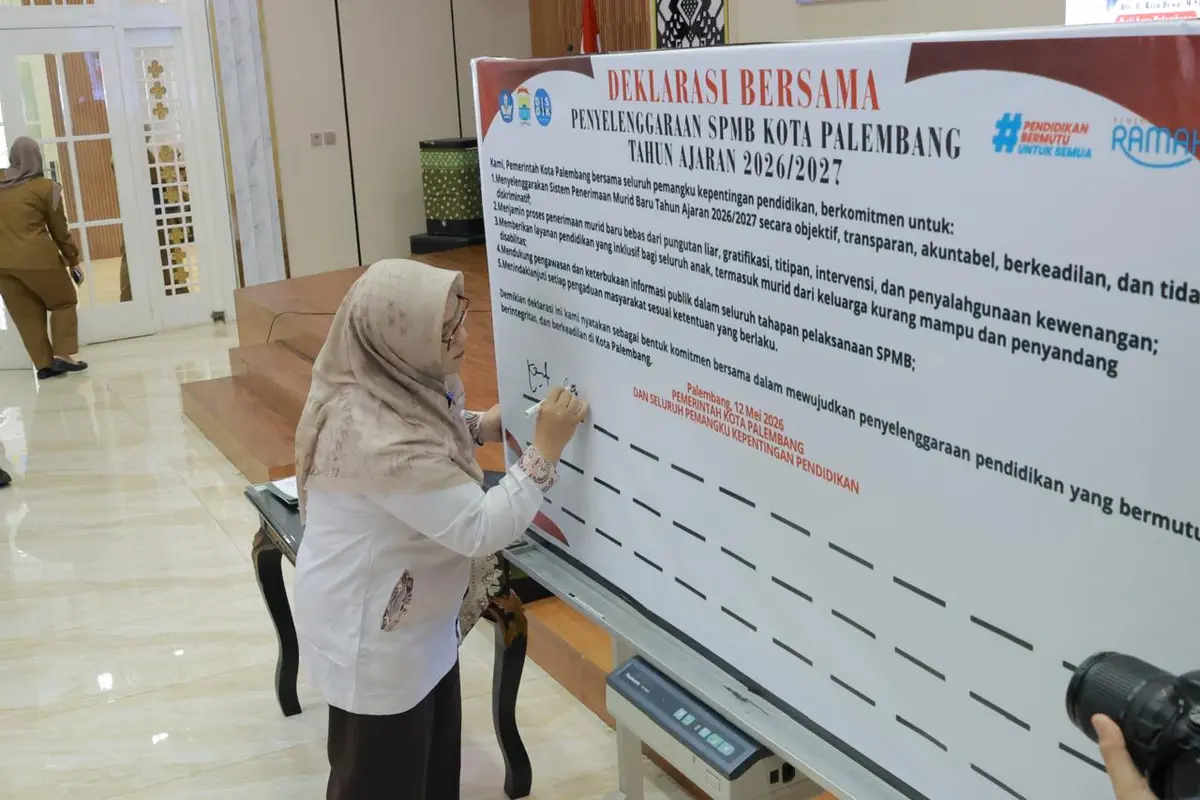 DEKLARASI BERSAMA
PENYELENGGARAAN SPMB KOTA PALEMBANG
TAHUN AJARAN 2026/2027
#PENDIDIKAN
BERMUTU
UNTUK SEMUA
RAMAH
DIS
DIK
Kami, Pemerintah Kota Palembang bersama seluruh pemangku kepentingan pendidikan, berkomitmen untuk:
1.Menyelenggarakan Sistem Penerimaan Murid Baru Tahun Ajaran 2026/2027 secara objektif, transparan, akuntabel, berkeadilan, dan tida
diskriminatif;
2.Menjamin proses penerimaan murid baru bebas dari pungutan liar, gratifikasi, titipan, intervensi, dan penyalahgunaan kewenangan;
3.Memberikan layanan pendidikan yang inklusif bagi seluruh anak, termasuk murid dari keluarga kurang mampu dan penyandang
disabilitas;
4.Mendukung pengawasan dan keterbukaan informasi publik dalam seluruh tahapan pelaksanaan SPMB;
5.Menindaklanjuti setiap pengaduan masyarakat sesuai ketentuan yang berlaku.
Demikian deklarasi ini kami nyatakan sebagai bentuk komitmen bersama dalam mewujudkan penyelenggaraan pendidikan yang bermutu
berintegritas, dan berkeadilan di Kota Palembang.
Palembang, 12 Mei 2026
PEMERINTAH KOTA PALEMBANG
DAN SELURUH PEMANGKU KEPENTINGAN PENDIDIKAN